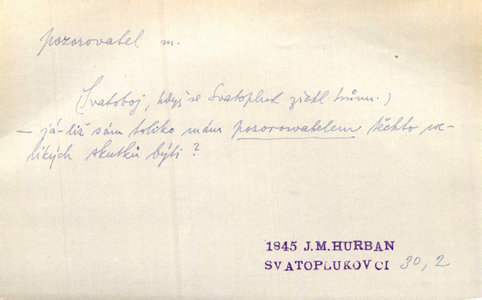 pozorovatel m.
(Svatoboj, když se Svatopluk zřekl trůnu.)
— já-liž sám toliko mám pozorowatelem těchto we-
likých skutků býti?
1845 J.M.HURBAN
SVATOPLUKOVCI 30, 2